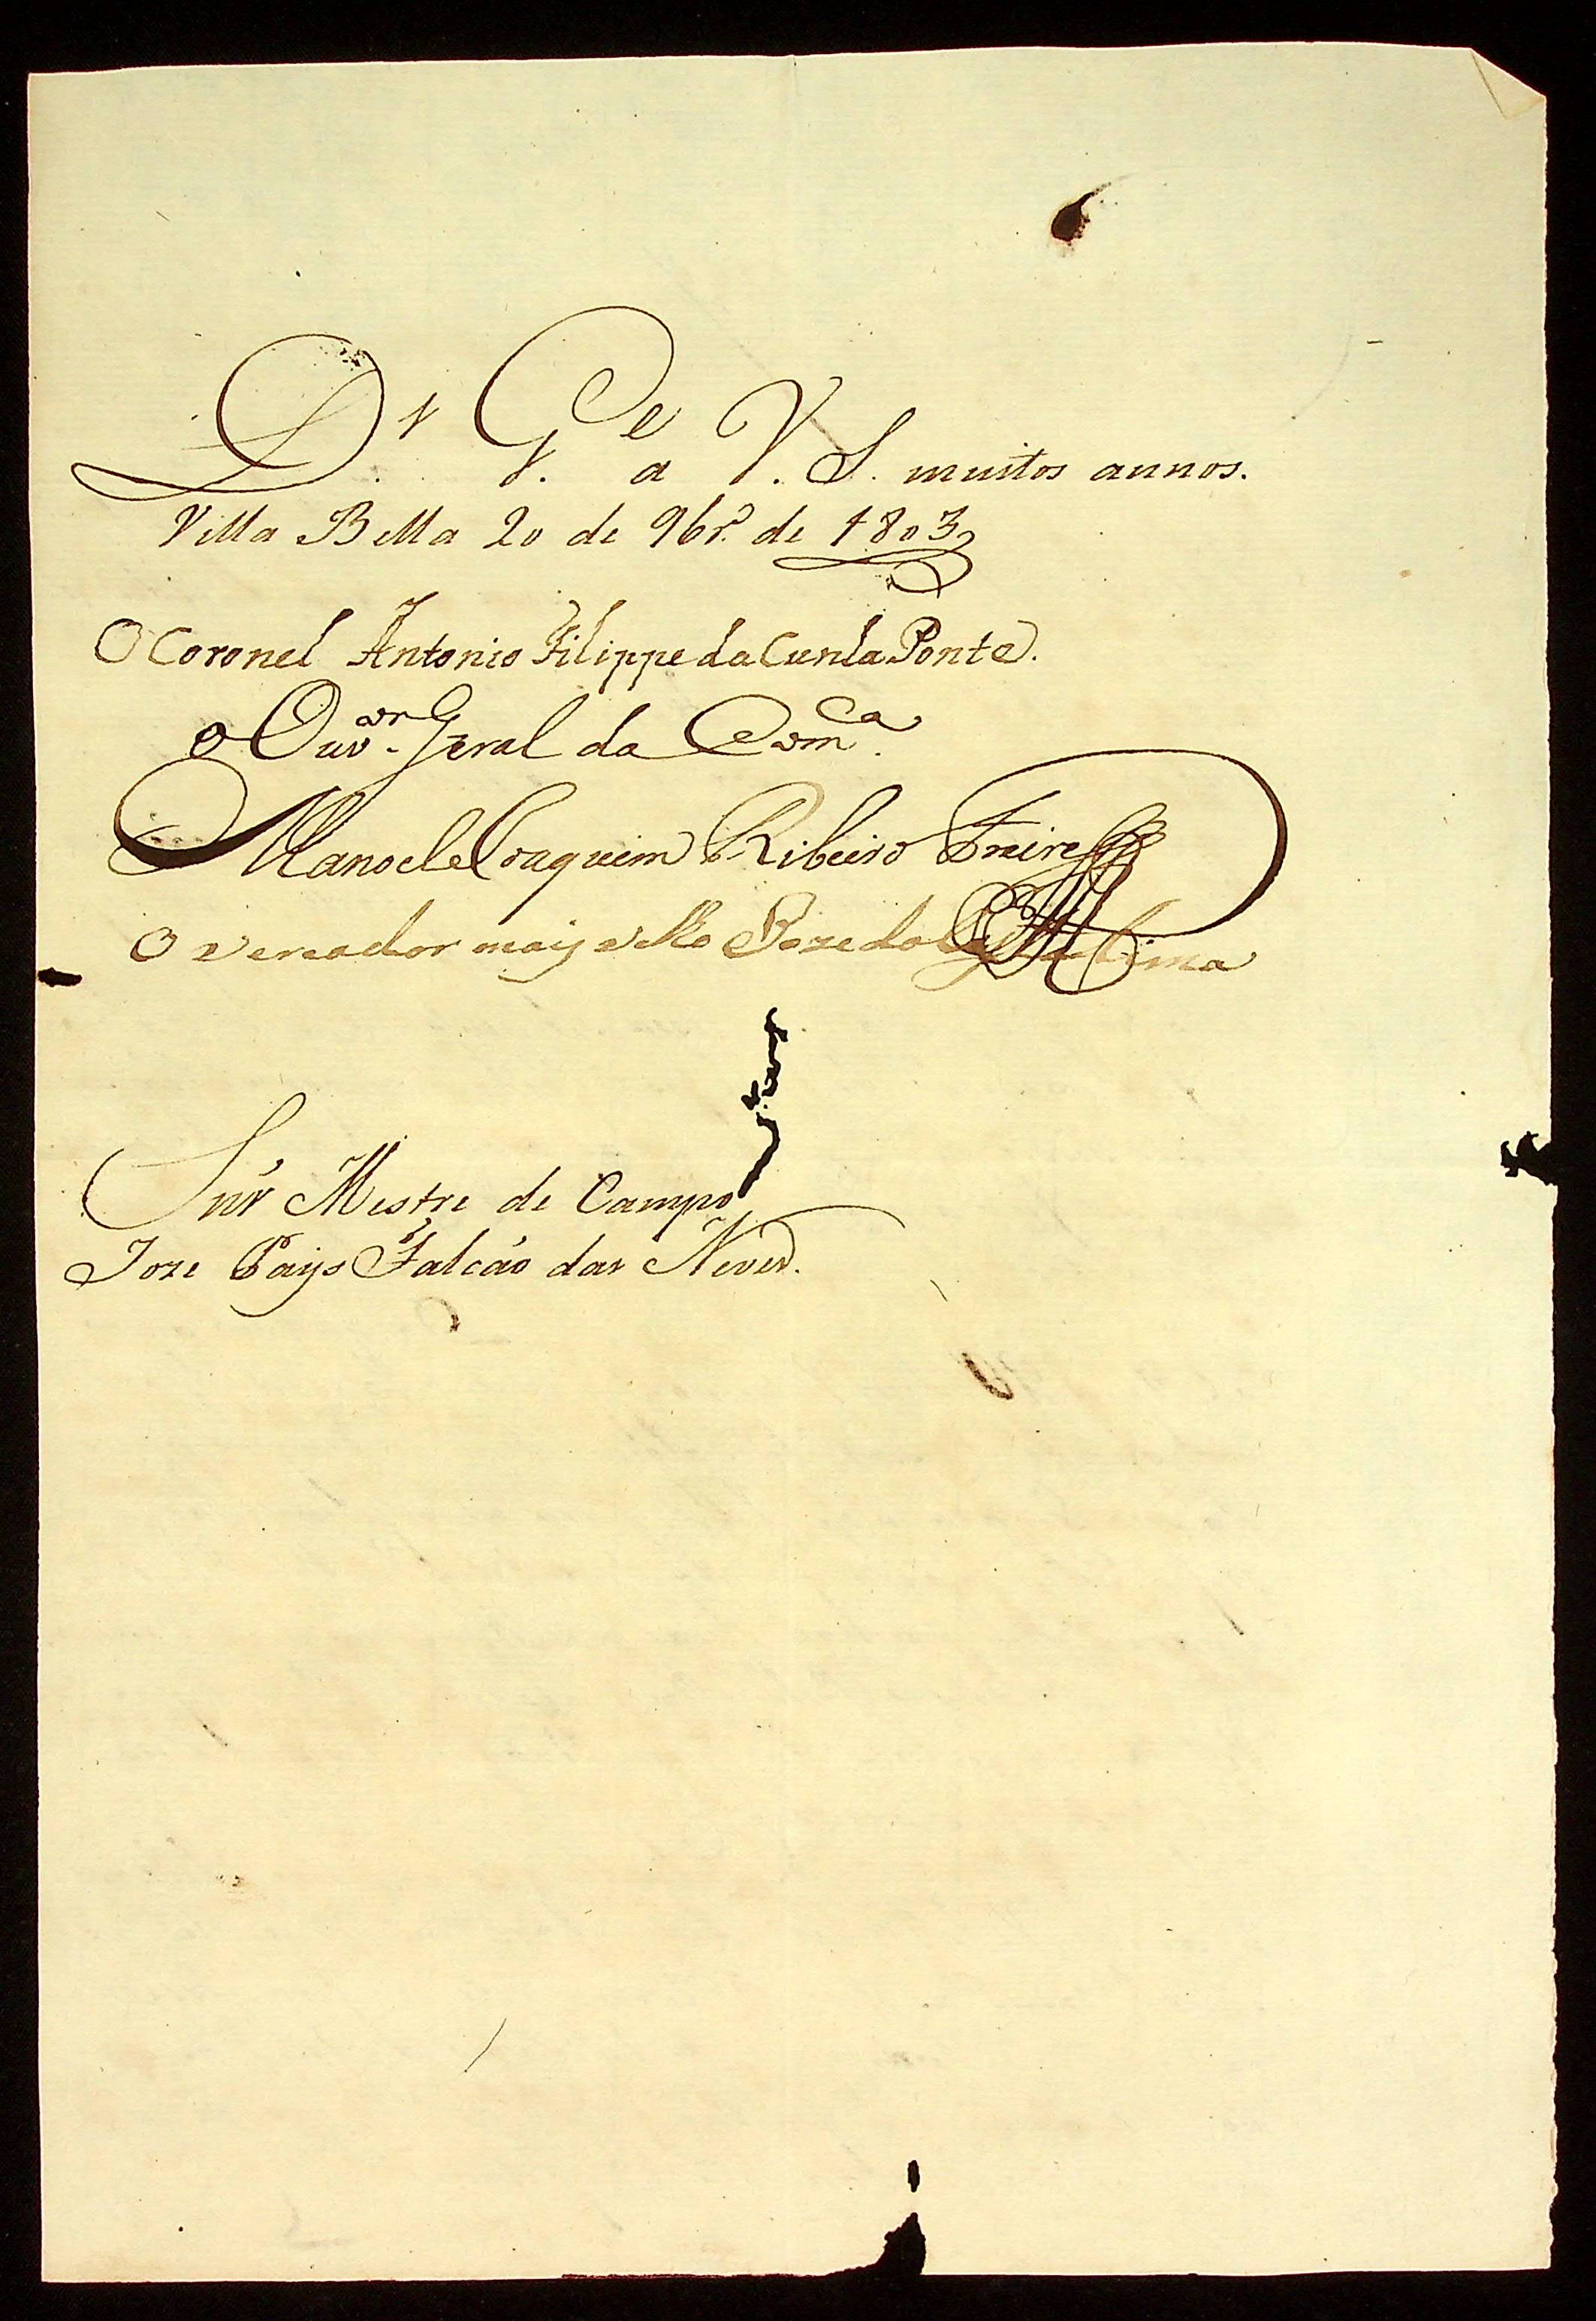 D.s G.e a V. S. muitos annos.
Villa Bella 20 de 9br.o de 1803
O Coronel Antonio Filippe da Cunha Ponte.
O Ouv.or Geral da Com.ca
Manoel Joaquim Ribeiro Freire
O vereador mais velho Joze da Lima
Snr Mestre de Campo
Joze Pays Falcaó das Neves.